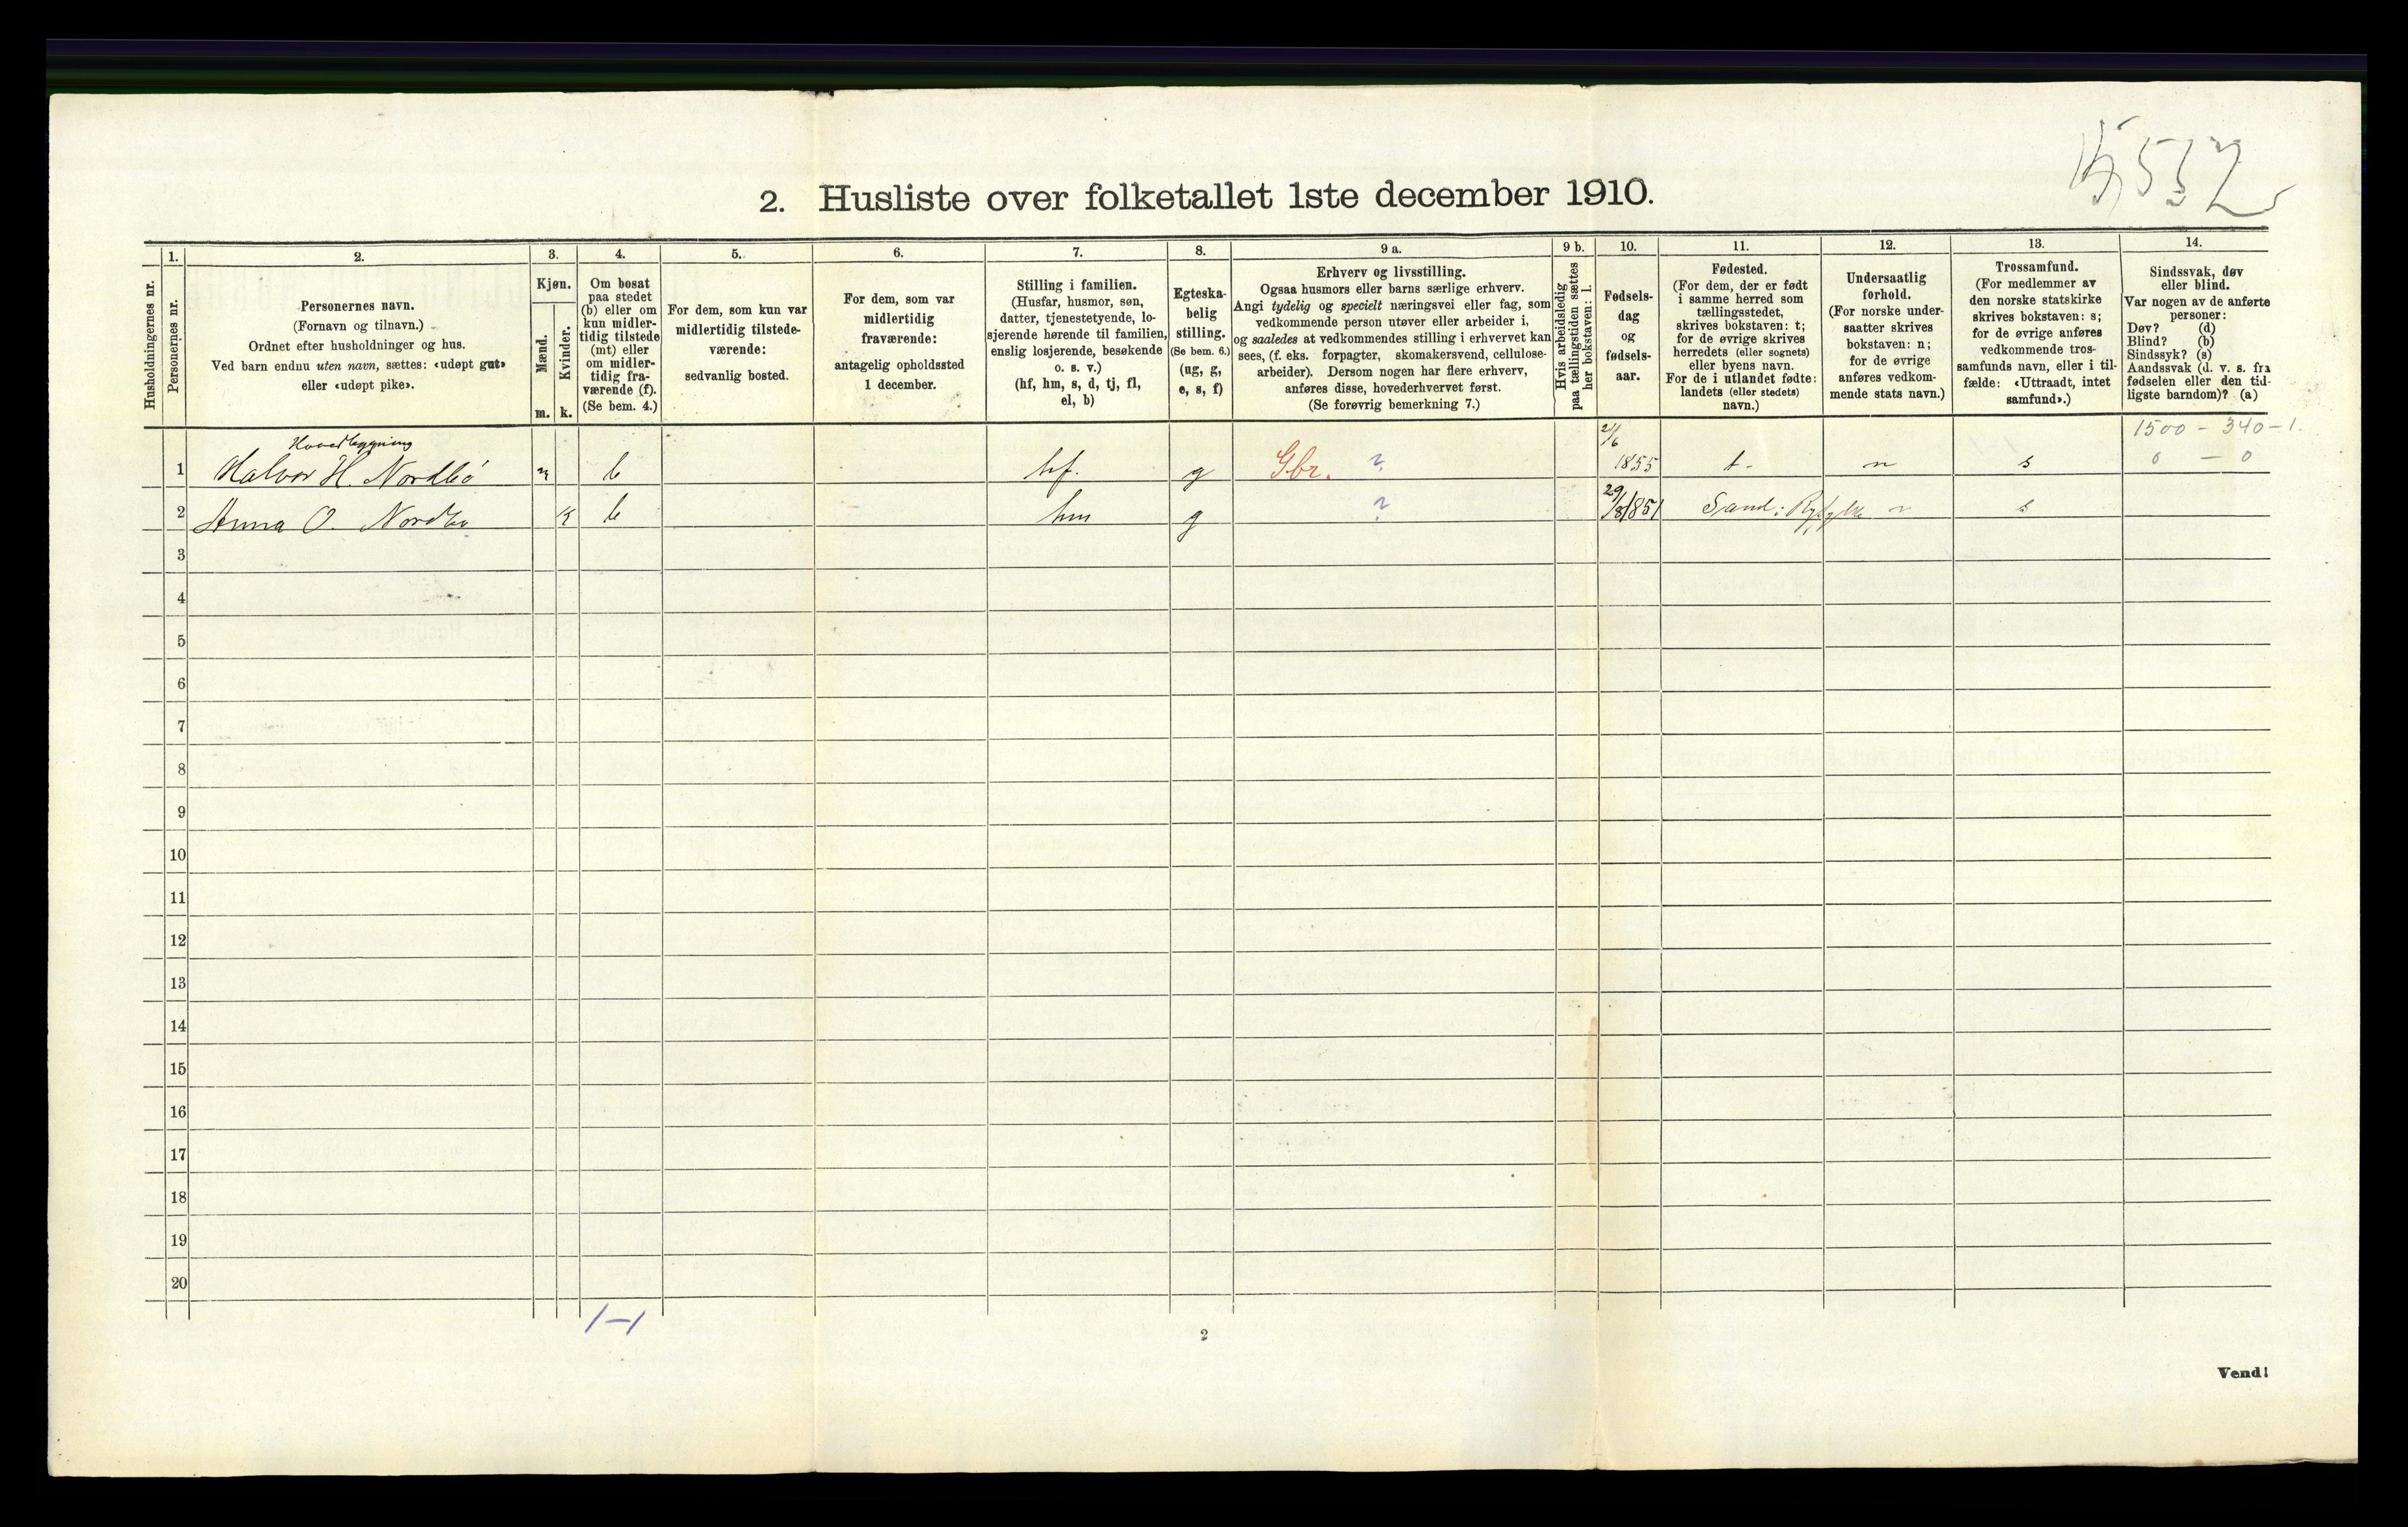 2. Husliste over folketallet 1ste december 1910.
Husholdningernes nr.
1.
Personernes nr.
2.
Personernes navn.
(Fornavn og tilnavn.)
Ordnet efter husholdninger og hus.
Ved barn endnu uten navn, sættes: «udøpt gut»
eller «udøpt pike».
3.
Kjøn.
Mænd.
Kvinder.
m. k.
4.
Om bosat
paa stedet
(b) eller om
kun midler-
tidig tilstede
(mt) eller
om midler-
tidig fra-
værende (f).
(Se bem. 4.)
5.
For dem, som kun var
midlertidig tilstede-
værende:
sedvanlig bosted.
6.
For dem, som var
midlertidig
fraværende:
antagelig opholdssted
1 december.
7.
Stilling i familien.
(Husfar, husmor, søn,
datter, tjenestetyende, lo-
sjerende hørende til familien,
enslig losjerende, besøkende
o. s. v.)
(hf, hm, s, d, tj, fl,
el, b)
8.
Egteska-
belig
stilling.
(Se bem. 6.)
(ug, g,
e, s, f)
9 a.
Erhverv og livsstilling.
Ogsaa husmors eller barns særlige erhverv.
Angi tydelig og specielt næringsvei eller fag, som
vedkommende person utøver eller arbeider i,
og saaledes at vedkommendes stilling i erhvervet kan
sees, (f. eks. forpagter, skomakersvend, cellulose-
arbeider). Dersom nogen har flere erhverv,
anføres disse, hovederhvervet først.
(Se forøvrig bemerkning 7.)
9 b.
Hvis arbeidsledig
paa tællingstiden sættes
her bokstaven: l.
10.
Fødsels-
dag
og
fødsels-
aar.
11.
Fødested.
(For dem, der er født
i samme herred som
tællingsstedet,
skrives bokstaven: t;
for de øvrige skrives
herredets (eller sognets)
eller byens navn.
For de i utlandet fødte:
landets (eller stedets)
navn.)
12.
Undersaatlig
forhold.
(For norske under-
saatter skrives
bokstaven: n;
for de øvrige
anføres vedkom-
mende stats navn.)
13.
Trossamfund.
(For medlemmer av
den norske statskirke
skrives bokstaven: s;
for de øvrige anføres
vedkommende tros-
samfunds navn, eller i til-
fælde: «Uttraadt, intet
samfund».)
14.
Sindssvak, døv
eller blind.
Var nogen av de anførte
personer:
Døv? (d)
Blind? (b)
Sindssyk? (s)
Aandssvak (d. v. s. fra
fødselen eller den tid-
ligste barndom)? (a)
1500 - 340 - 1.
0 - 0
Hovedbygning
1 Halvor H. Nordbö m b hf. g Gbr. ? 1855 t. n s
2 Anna O. Nordbö k b hm g ? 29/8 1851 Sand: Ryfylke n s
3
4
5
6
7
8
9
10
11
12
13
14
15
16
17
18
19
20
1-1
2
Vend!